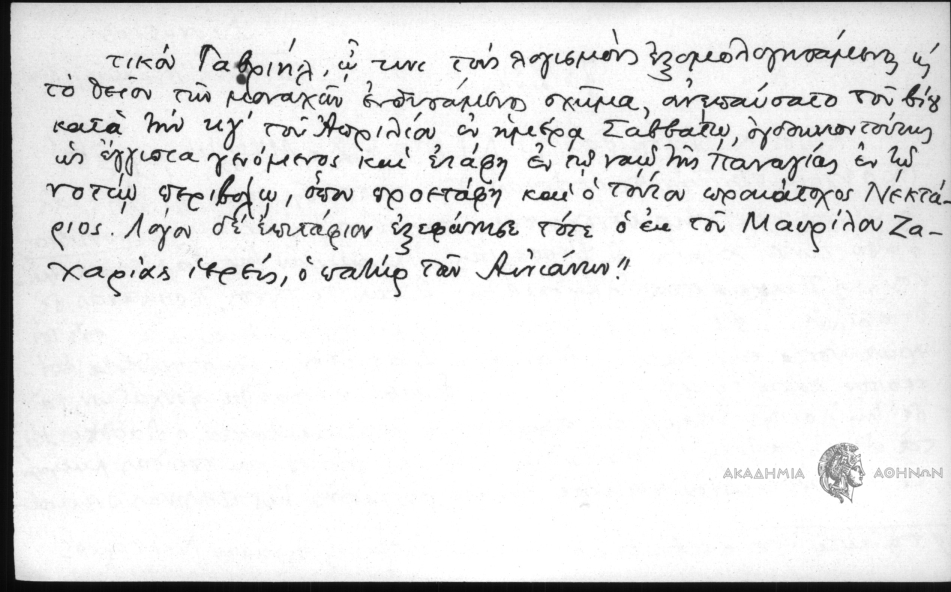 τικόν Γαβριήλ, ᾧ τινι τούς λογισμούς ἐξομολογησάμενος καί
τό θεῖον τῶν μοναχῶν ἐνδυσάμενος σχῆμα, ἀνεπαύσατο τοῦ βίου
κατά τήν κγ΄ τοῦ Ἀπριλίου ἐν ἡμέρᾳ Σαββάτῳ, ὀγδοηκοντούτης
ὡς ἔγγιστα γενόμενος καί ἐτάφη ἐν τῷ ναῷ τῆς Παναγίας ἐν τῷ
νοτίῳ περιβόλῳ, ὅπου προετάφη καί ὁ τούτου προκάτοχος Νεκτά-
ριος. Λόγον δέ ἐπιτάφιον ἐξεφώνησε τότε ὁ ἐκ τοῦ Μαυρίλου Ζα-
χαρίας ἱερεύς, ὁ πατήρ τῶν Αἰνιάνων"
ΑΚΑΔΗΜΙΑ ΑΘΗΝΩΝ